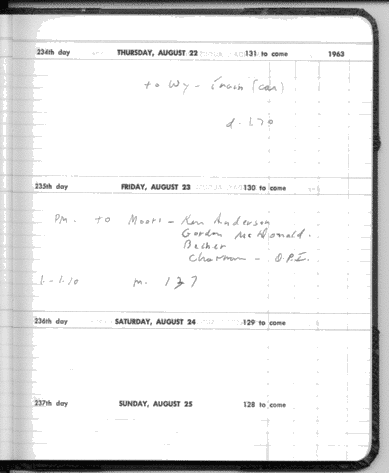 234th day THURSDAY, AUGUST 22 131 to come 1963
to Wy - (car)
d. 1.70
235th day FRIDAY, AUGUST 23 130 to come
Pm. to - Ken Anderson
Gordon McDonald.
Chairman - O.P.I.
L - 1.10 m. 137
236th day SATURDAY, AUGUST 24 129 to come
237th day SUNDAY, AUGUST 25 128 to come